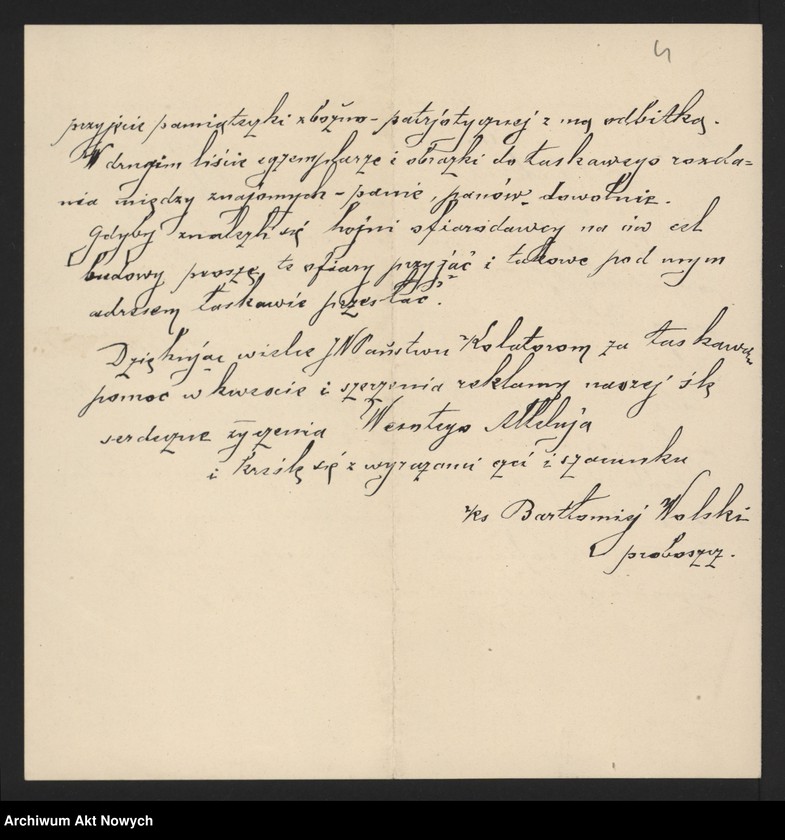 4
przyjęcie pamiątczki zbożno-patrjotycznej z mą odbitką.
W drugim liście egzemplarze i obrazki do łaskawego rozda=
nia między znajomych - panie, panów - dowolnie.
Gdyby znaleźli się hojni ofiarodawcy na ów cel
budowy proszę te ofiary przyjąć i takowe pod mym
adresem łaskawie przesłać.
Dziękując wielce JWPaństwu Kolatorom za łaskawą
pomoc w kweście i szerzenia reklamy naszej ślę
serdeczne życzenia Wesołego Alleluja
i kreślę się z wyrazami czci i szacunku
Ks Bartłomiej Wolski
proboszcz.
Archiwum Akt Nowych